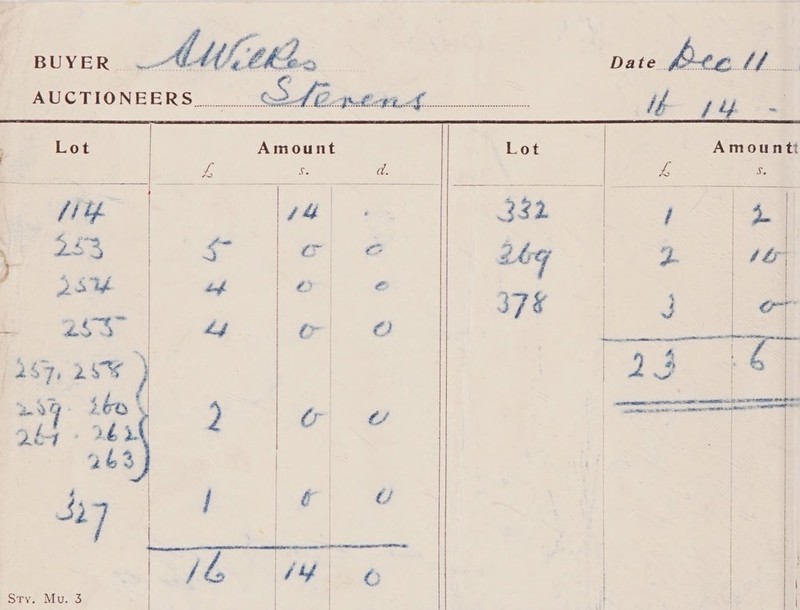 BUYER A Wilkes
AUCTIONEERS Stevens
Date Dec 11
16 14 -
Lot Amount
£ s. d.
114 14 .
253 5 0 0
254 4 0 0
255 4 0 0
257, 258
259. 260
261. 262 2 0 0
263
327 1 0 0
16 14 0
STY. MU. 3
Lot Amount
£ s.
332 1 2
369 2 10
378 3 0
23 6